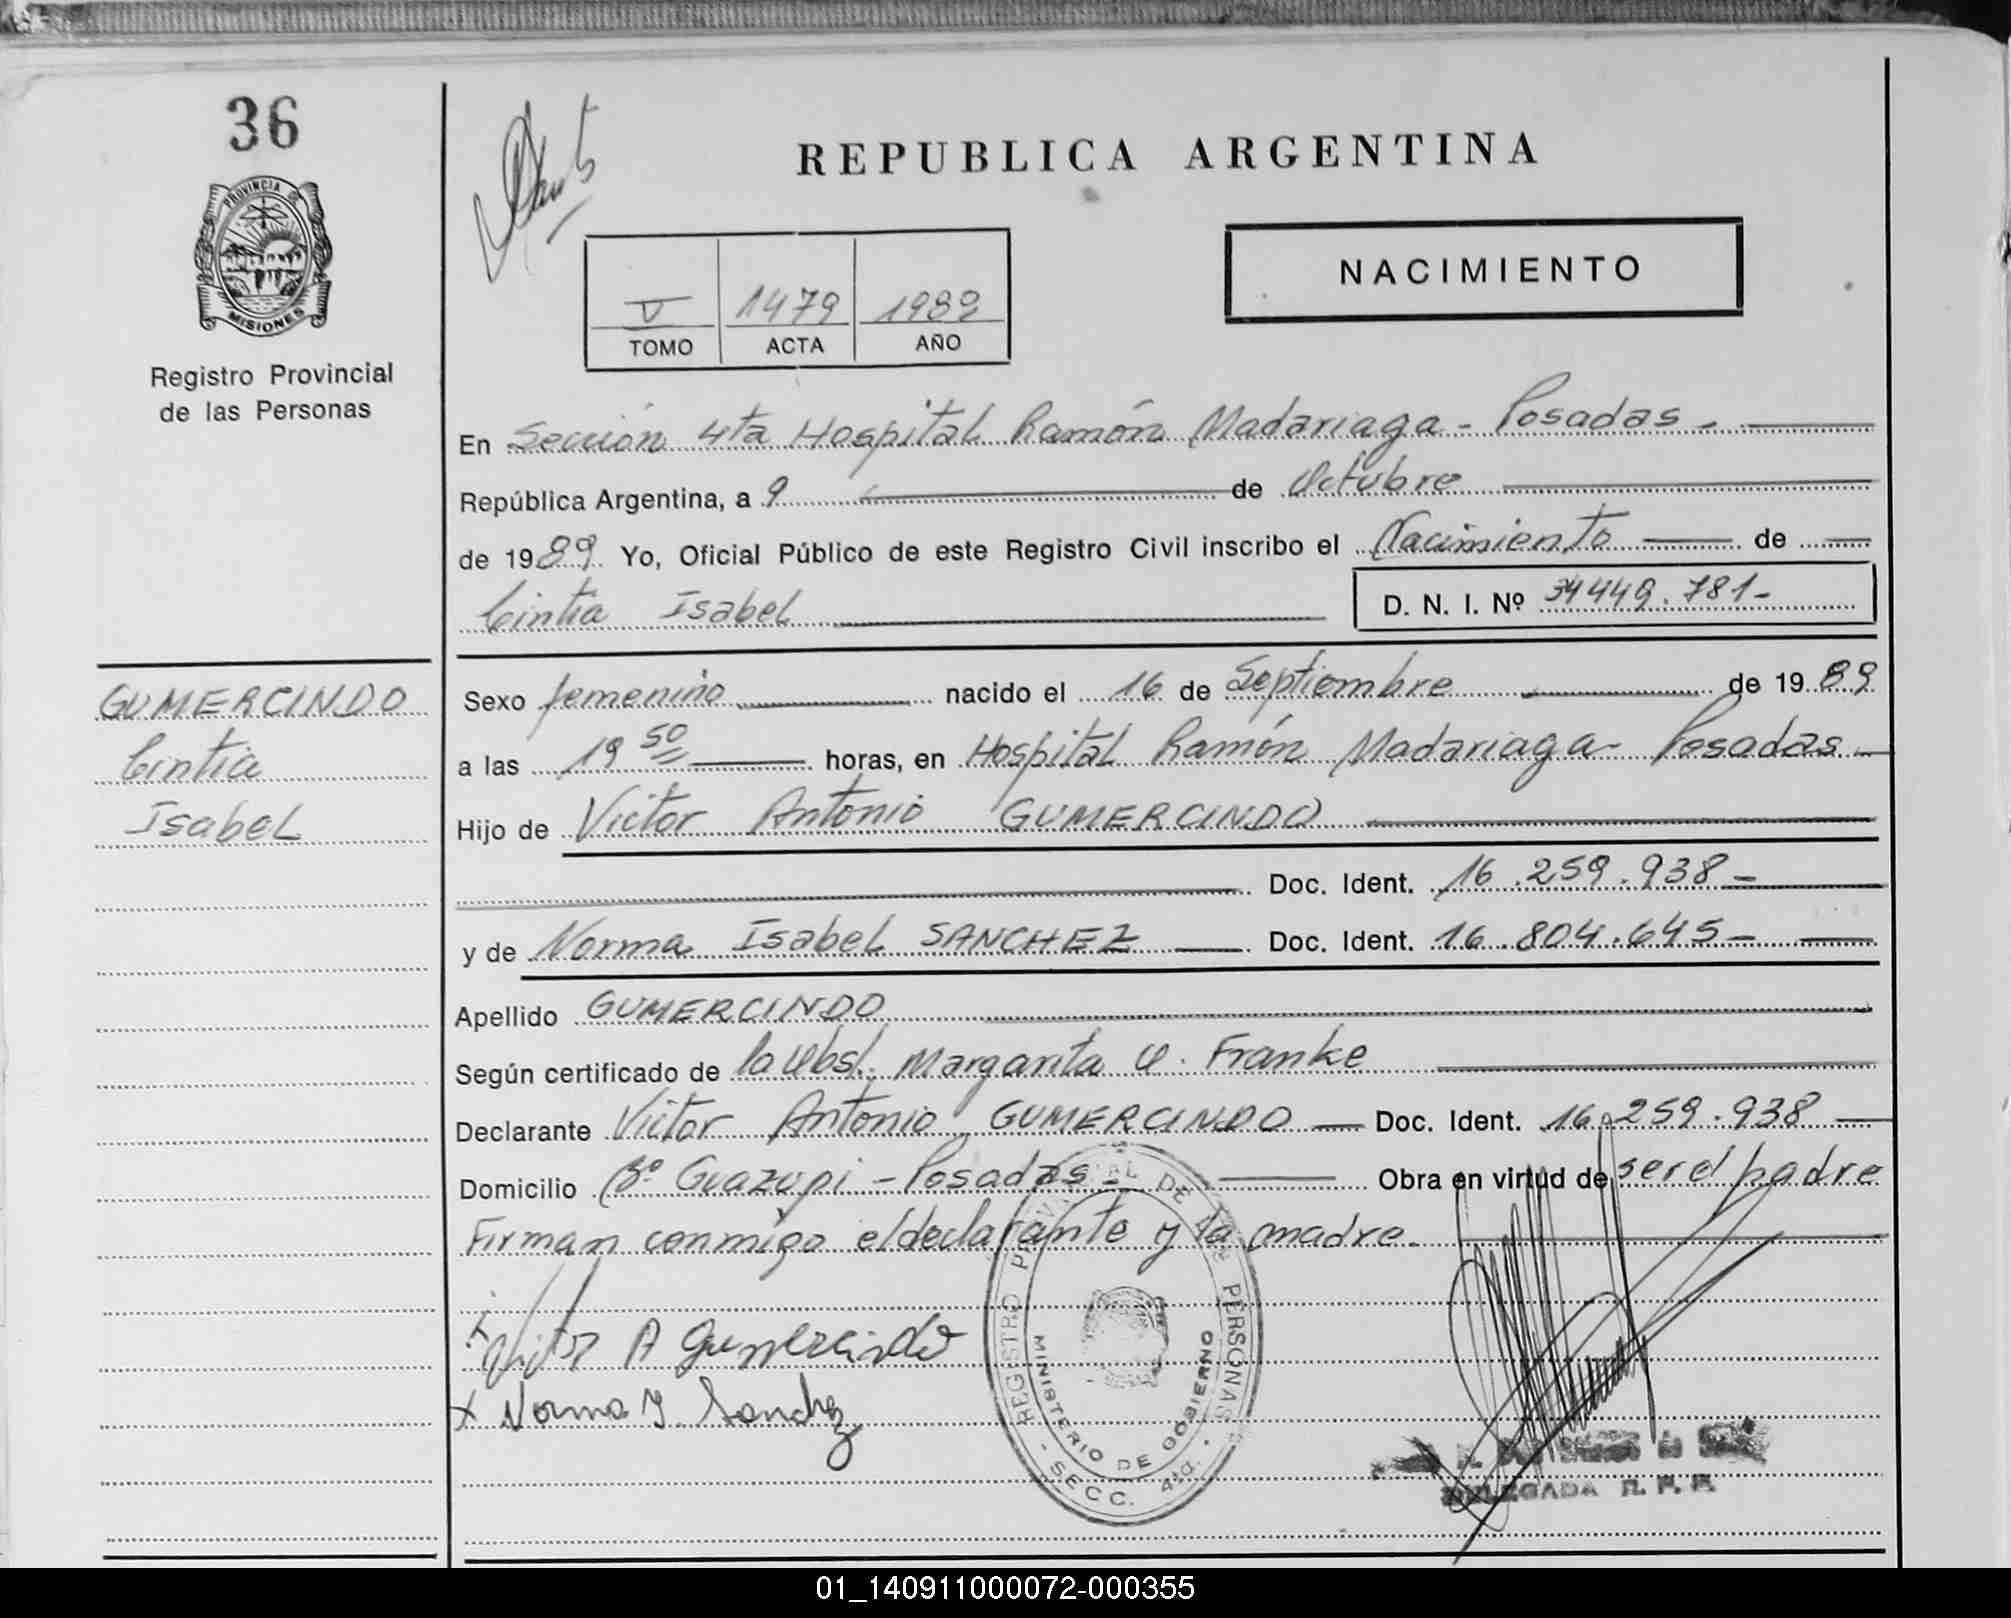 36
PROVINCIA DE
MISIONES
Registro Provincial
de las Personas
REPUBLICA ARGENTINA
NACIMIENTO
V 1479 1989
TOMO ACTA AÑO
En Sección 4ta Hospital Ramón Madariaga - Posadas -
República Argentina, a 9 de Octubre
de 1989. Yo, Oficial Público de este Registro Civil inscribo el Nacimiento de
Cintia Isabel D. N. I. Nº 34449.781-
GUMERCINDO
Cintia
Isabel
Sexo femenino nacido el 16 de Septiembre de 1989
a las 19 50 horas, en Hospital Ramón Madariaga - Posadas -
Hijo de Victor Antonio GUMERCINDO
Doc. Ident. 16.259.938-
y de Norma Isabel SANCHEZ Doc. Ident. 16.804.645-
Apellido GUMERCINDO
Según certificado de la Obst. Margarita O. Franke
Declarante Victor Antonio GUMERCINDO - Doc. Ident. 16.259.938
Domicilio Bº Guazupi - Posadas - Obra en virtud de ser el padre
Firman conmigo el declarante y la madre.
Victor A Gumercindo
x Norma I Sanchez
REGISTRO PROVINCIAL DE LAS PERSONAS
MINISTERIO DE GOBIERNO
- SECC. 4ta. -
DELEGADA R. P. P.
01_140911000072-000355